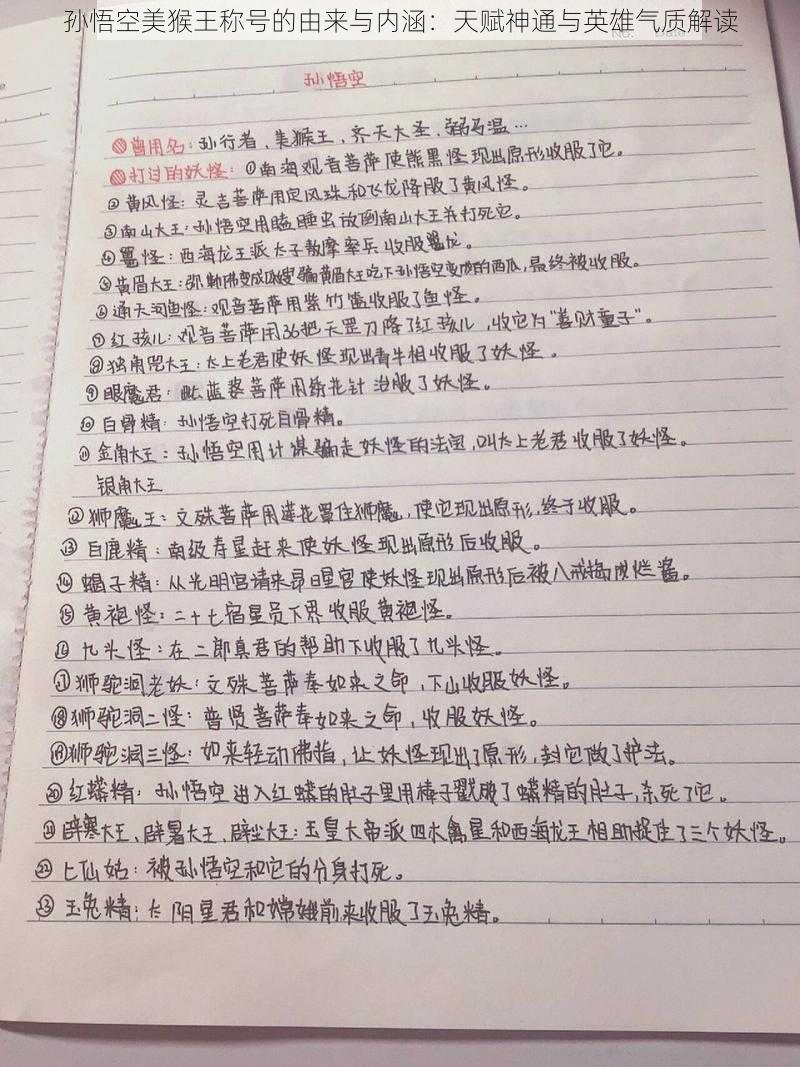 孙悟空美猴王称号的由来与内涵：天赋神通与英雄气质解读
No. Date
孙悟空
曾用名：孙行者、美猴王、齐天大圣、弼马温…
打过的妖怪：①南海观音菩萨使熊黑怪现出原形收服了它。
②黄风怪：灵吉菩萨用定风珠和飞龙降服了黄风怪。
③南山大王：孙悟空用瞌睡虫放倒南山大王并打死它。
④鼍怪：西海龙王派太子敖摩率兵收服鼍龙。
⑤黄眉大王：弥勒佛变成瓜叟骗黄眉大王吃下孙悟空变成的西瓜，最终被收服。
⑥通天河鱼怪：观音菩萨用紫竹篮收服了鱼怪。
⑦红孩儿：观音菩萨用36把天罡刀降了红孩儿，收它为“善财童子”。
⑧独角兕大王：太上老君使妖怪现出青牛相收服了妖怪。
⑨眼魔君：毗蓝婆菩萨用绣花针治服了妖怪。
⑩白骨精：孙悟空打死白骨精。
⑪金角大王：孙悟空用计谋骗走妖怪的法宝，叫太上老君收服了妖怪。
银角大王
⑫狮魔王：文殊菩萨用莲花罩住狮魔，使它现出原形，终于收服。
⑬白鹿精：南级寿星赶来使妖怪现出原形后收服。
⑭蝎子精：从光明宫请来昴日星官使妖怪现出原形后被八戒捣成烂酱。
⑮黄袍怪：二十七宿星员下界收服黄袍怪。
⑯九头怪：在二郎真君的帮助下收服了九头怪。
⑰狮驼洞老妖：文殊菩萨奉如来之命，下山收服妖怪。
⑱狮驼洞二怪：普贤菩萨奉如来之命，收服妖怪。
⑲狮驼洞三怪：如来轻动佛指，让妖怪现出了原形，封它做了护法。
⑳红蟒精：孙悟空进入红蟒的肚子里用棒子戳破了蟒精的肚子，杀死了它。
㉑辟寒大王、辟暑大王、辟尘大王：玉皇大帝派四木禽星和西海龙王相助捉住了三个妖怪。
㉒七仙姑：被孙悟空和它的分身打死。
㉓玉兔精：太阳星君和嫦娥前来收服了玉兔精。